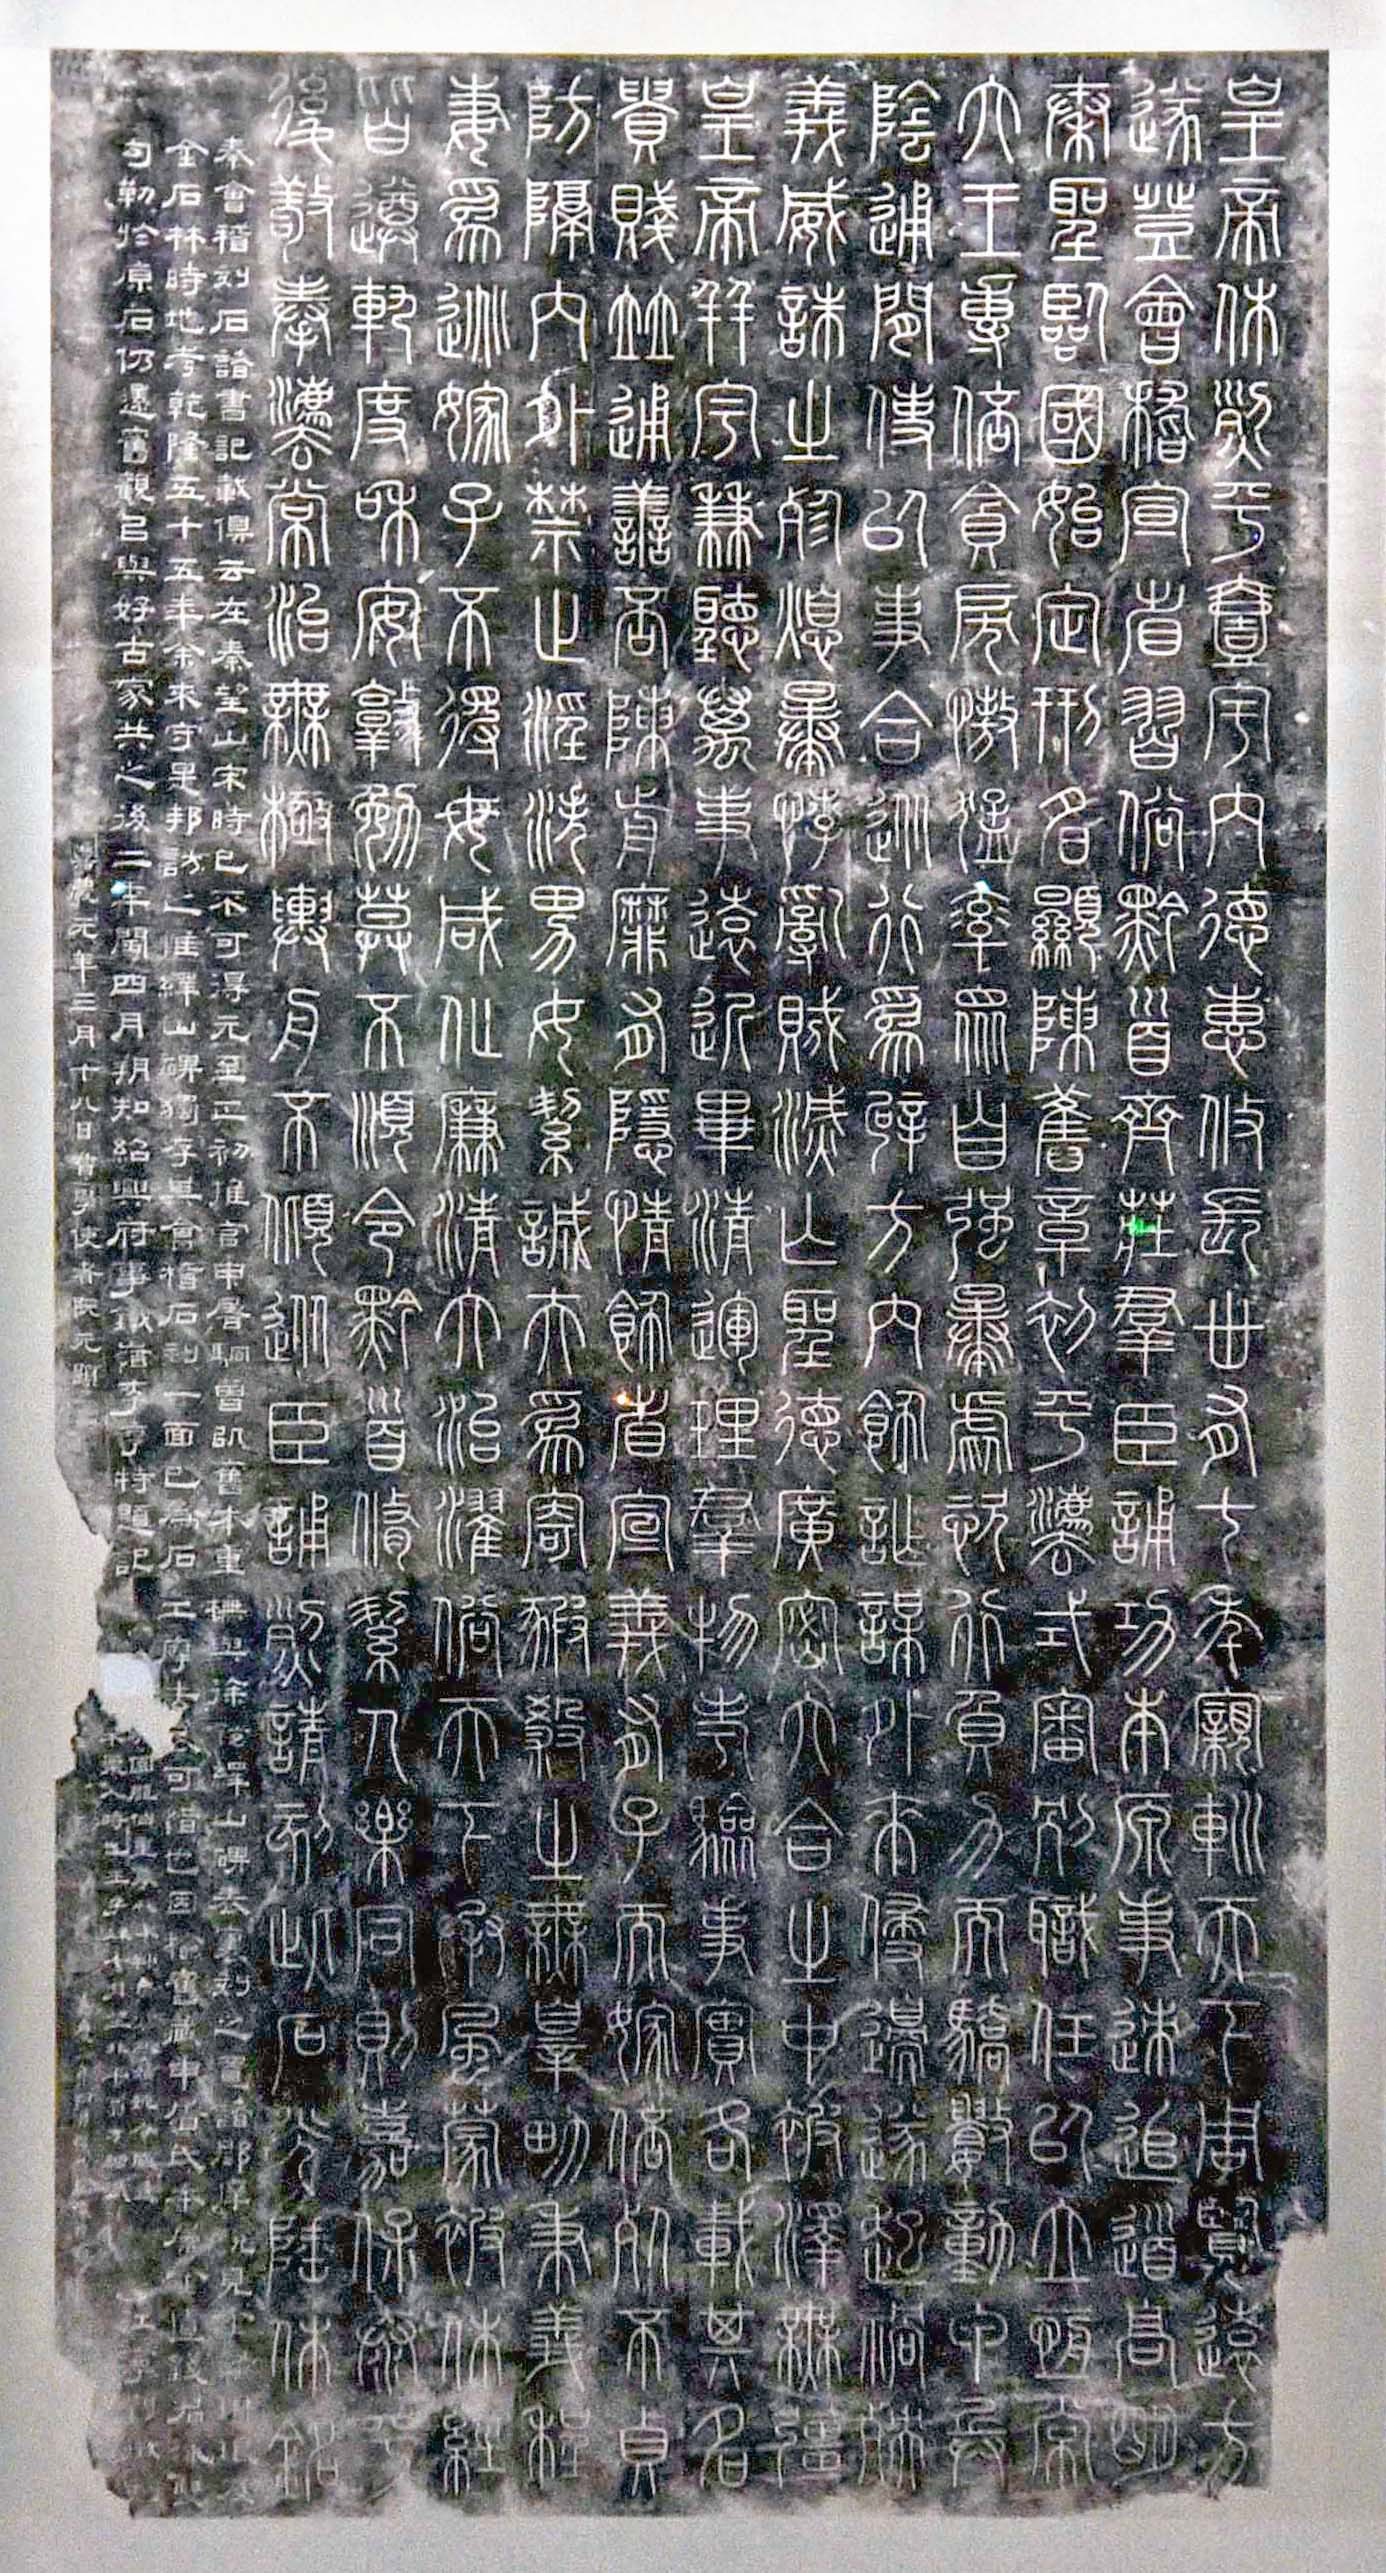 皇帝休烈平壹宇内德惠攸長丗有七年親巡天下周覽遠方
遂登會稽宣省習俗黔首齊莊羣臣誦功本原事迹追道高明
秦聖臨國始定刑名顯陳舊章初平灋式審別職任以立恆常
六王專倍貪戾慠猛率衆自强暴虐恣行負力而驕數動甲兵
陰通閒使以事合從行爲辟方内飾詐謀外來侵邊遂起禍殃
義威誅之殄熄暴悖亂賊滅亡聖德廣密六合之中被澤無疆
皇帝并宇兼聽萬事遠近畢清運理羣物考驗事實各載其名
貴賤並通善否陳前靡有隱情飾省宣義有子而嫁倍死不貞
防隔内外禁止淫泆男女絜誠夫爲寄豭殺之無辠男秉義程
妻爲逃嫁子不得母咸化廉清大治濯俗天下承風蒙被休經
皆遵軌度和安敦勉莫不順令黔首脩絜人樂同則嘉保泰平
後敬奉灋常治無極輿舟不傾從臣誦烈請刻此石光陲休銘
秦會稽刻石諸書記載俱云在秦望山宋時已不可得元至正初推官申屠駉曾以舊本重橅與徐氏繹山碑表裏刻之置諸郡庠見
金石林時地考乾隆五十五年余來守是邦訪之惟繹山碑獨存其會稽石刻一面已爲石工磨去可惜也因以舊藏申屠氏本屬
句勒於原石仍還舊觀以與好古家共之後二年閏四月朔知紹興府事鐵嶺李亨特題記
嘉慶元年三月十八日督學使者阮元觀